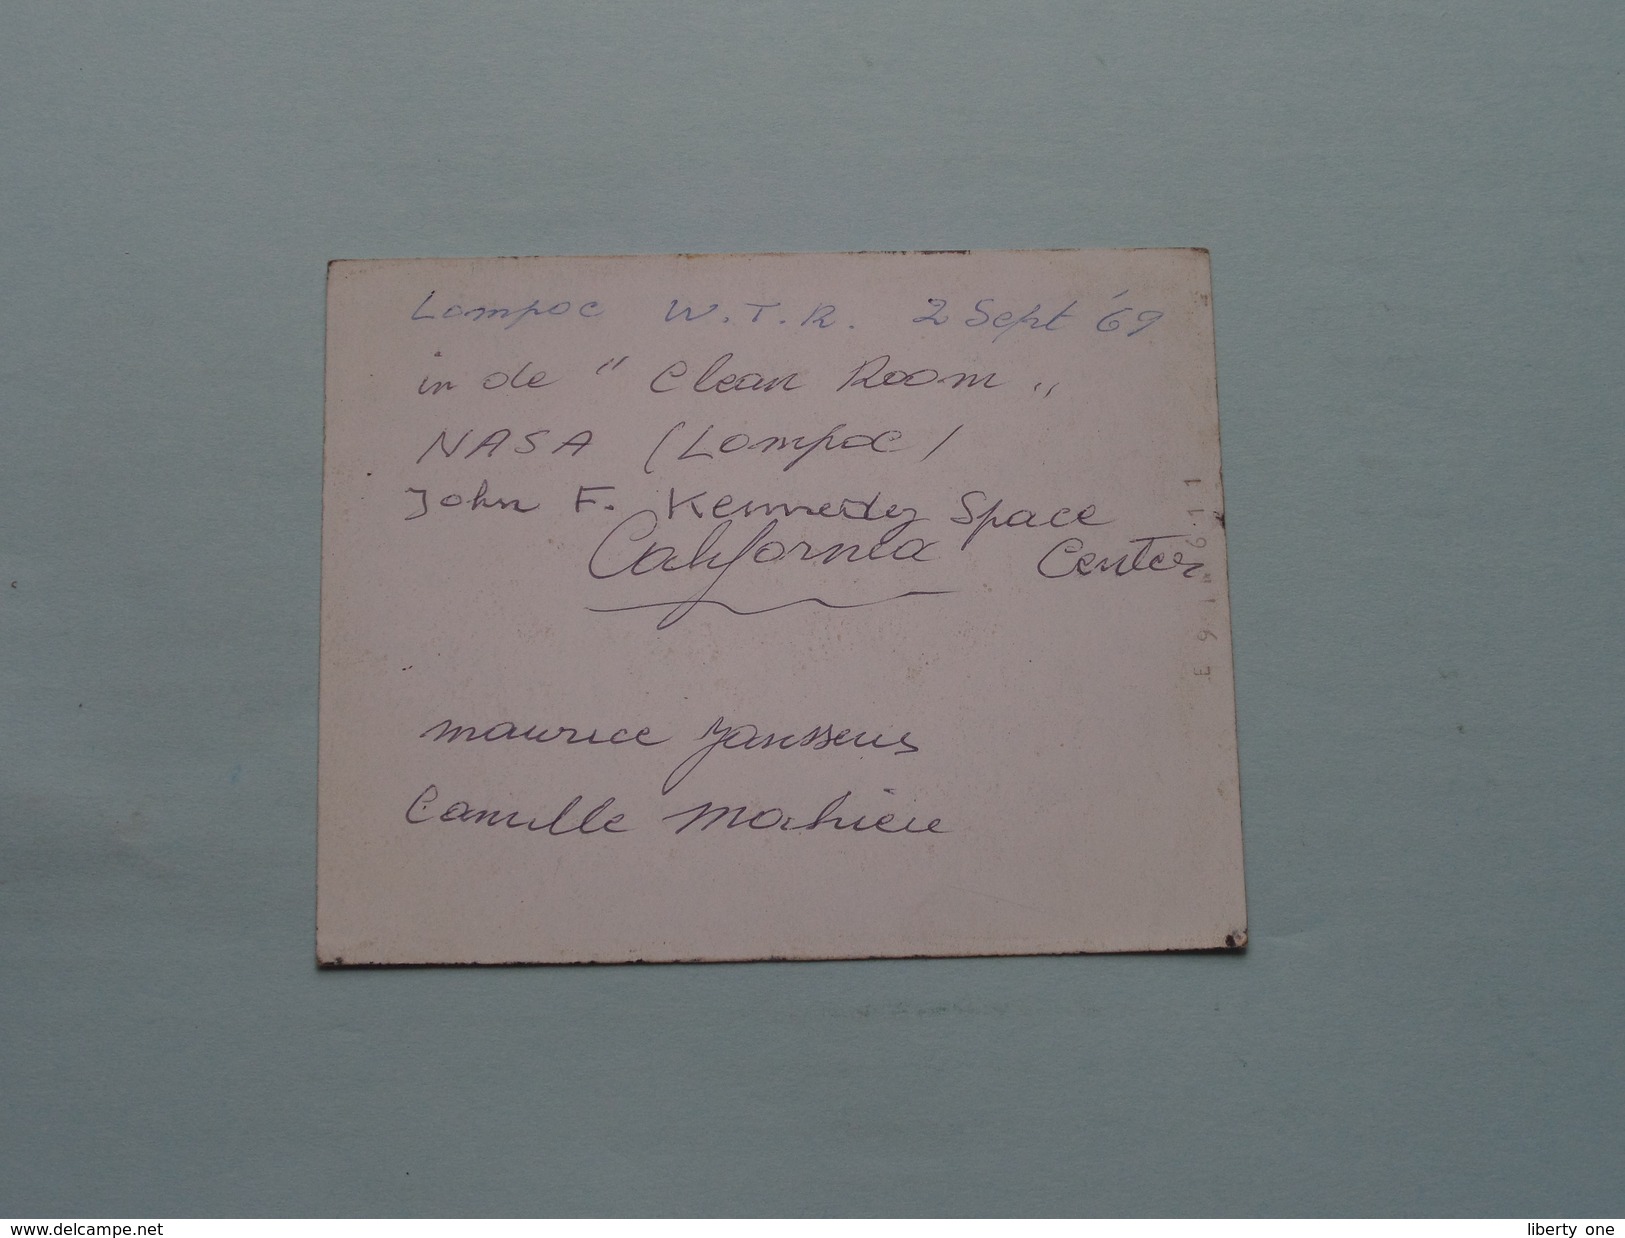 Lompoc W.T.R. 2 Sept '69
in de " Clean Room "
NASA (Lompoc)
John F. Kennedy Space
Center
California
maurice Janssens
Camille Mathieu
delcampe.net
liberty one